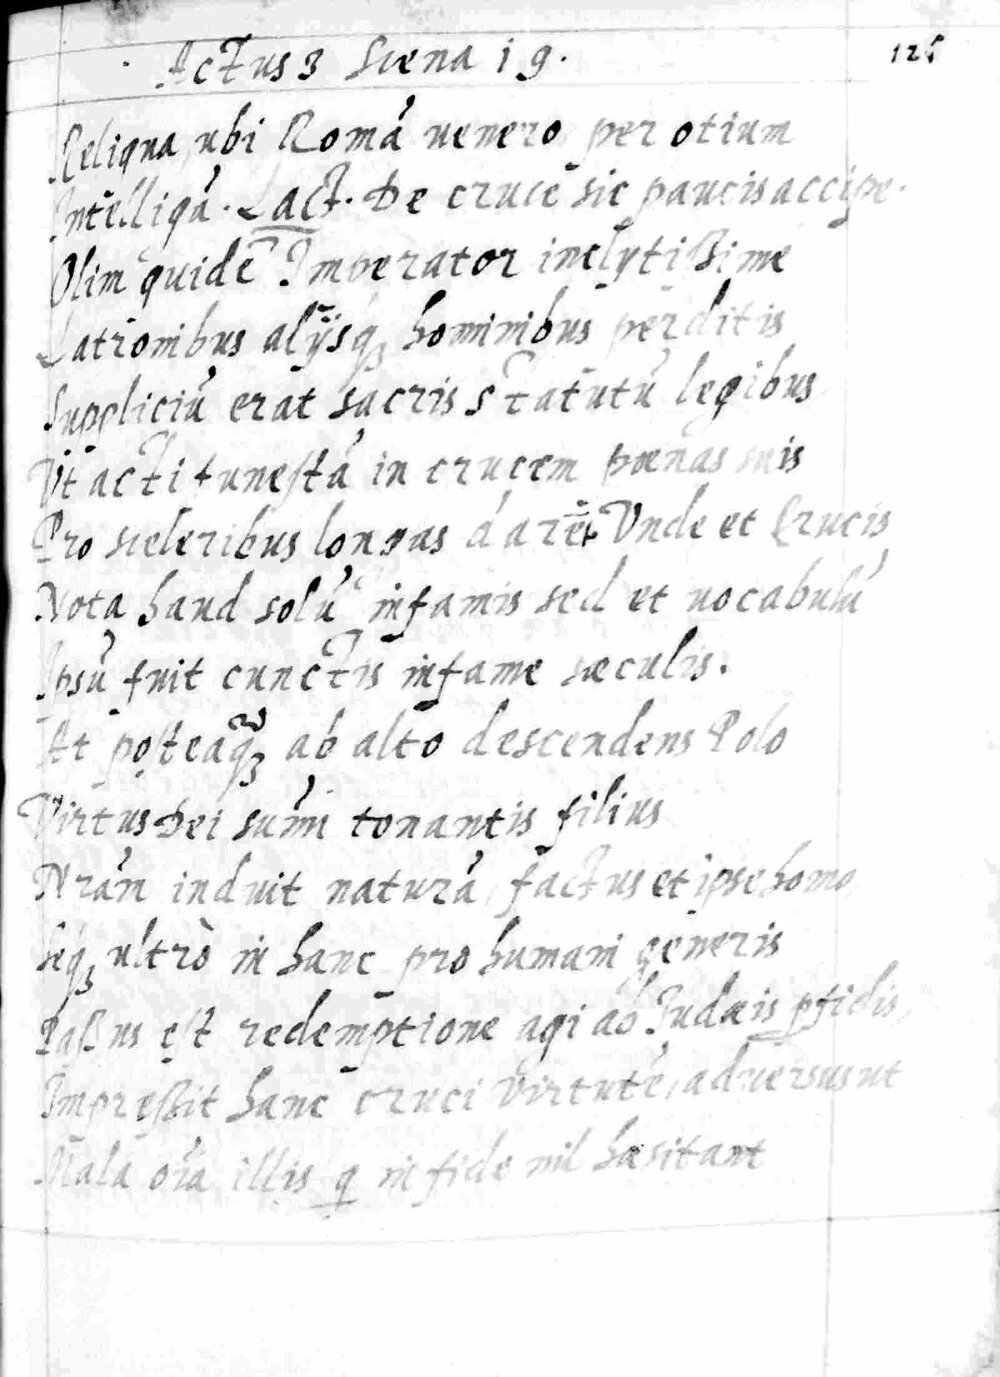 Actus 3 Scena 19.
125
Reliqua, ubi Romá uenero per otium
Intelligá. Lact. De cruce sic paucis accipe.
Olim quidē Imperator inclytißime
Latronibus alijsq; hominibus perditis
Suppliciú erat sacris statutú legibus
Vt acti funestá in crucem pœnas suis
Pro sceleribus longas darēt. Vnde et Crucis
Nota haud solú infamis sed et uocabulú
Ipsú fuit cunctis infame sæculis.
At posteaq; ab alto descendens Polo
Virtus Dei sumi tonantis filius
Nrám induit naturá, factus et ipse homo,
Seq; ultrò in hanc pro humani generis
Paßus est redemptione agi ab Judæis pfidis,
Impreßit hanc cruci virtuté, aduersus ut
Mala oia illis q in fide nil hæsitant